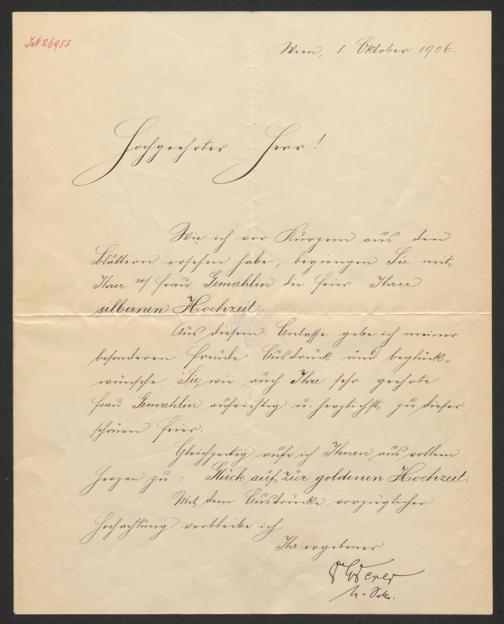 Wien, 1 Oktober 1906.
Hochgeehrter Herr!
Wie ich vor Kurzem aus den
Blättern ersehen habe, begiengen Sie mit
Ihrer Frau Gemahlin die Feier Ihrer
silbernen Hochzeit.
Aus diesem Anlasse gebe ich meiner
besonderen Freude Ausdruck und beglück-
wünsche Sie, wie auch Ihre sehr geehrte
Frau Gemahlin aufrichtig u. herzlichst zu dieser
schönen Feier.
Gleichzeitig rufe ich Ihnen aus vollem
Herzen zu: Glück auf, zur goldenen Hochzeit.
Mit dem Ausdrucke vorzüglicher
Hochachtung verbleibe ich
Ihr ergebener